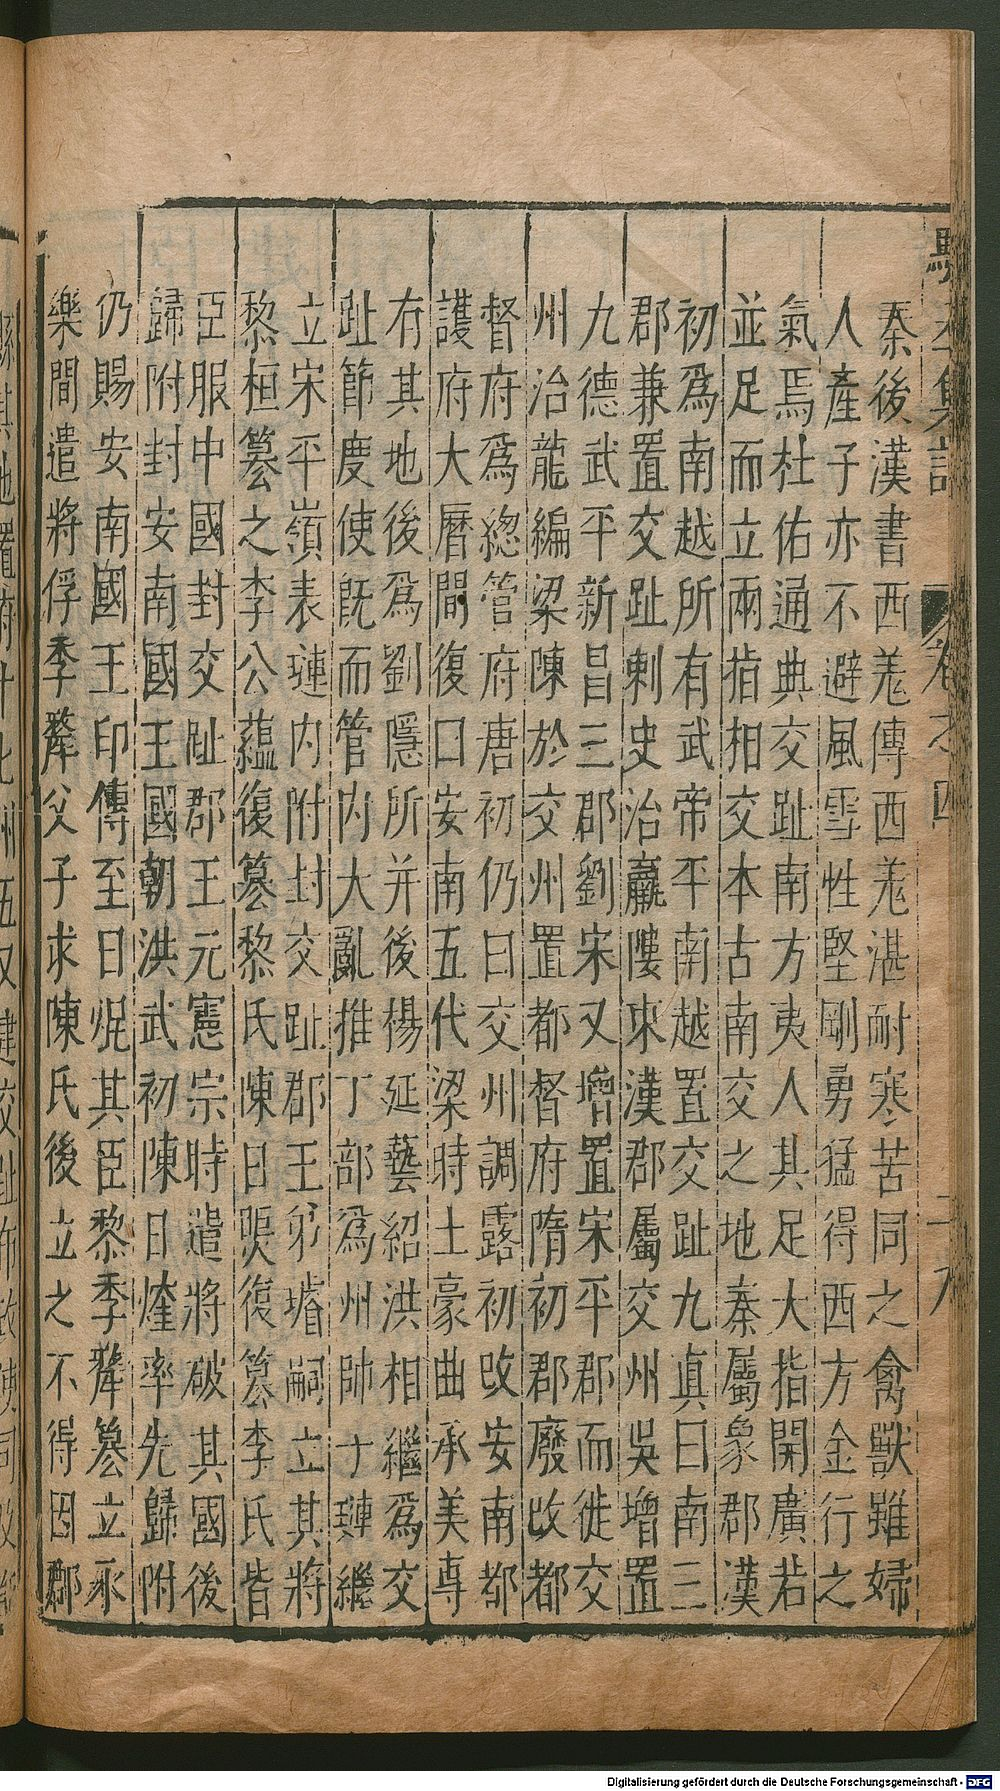 秦後漢書西羌傳西羌湛耐寒苦同之禽獸雖婦
人產子亦不避風雪性堅剛勇猛得西方金行之
氣焉杜佑通典交趾南方夷人其足大指開廣若
並足而立兩指相交本古南交之地秦屬象郡漢
初爲南越所有武帝平南越置交趾九真日南三
郡兼置交趾刺史治羸𨻻東漢郡屬交州吳增置
九德武平新昌三郡劉宋又增置宋平郡而徙交
州治龍編梁陳於交州置都督府隋初郡廢改都
督府爲總管府唐初仍曰交州調露初改安南都
護府大曆間復口安南五代梁時土豪曲承美專
有其地後爲劉隱所并後楊延藝紹洪相繼爲交
趾節度使既而管内大亂推丁部爲州帥十璉繼
立宋平嶺表璉内附封交趾郡王弟璿嗣立其將
黎桓篡之李公蘊復篡黎氏陳日煚復篡李氏皆
臣服中國封交趾郡王元憲宗時遣將破其國後
歸附封安南國王國朝洪武初陳日煃率先歸附
仍賜安南國王印傳至日焜其臣黎季犛篡立永
樂間遣將俘季犛父子求陳氏後立之不得因郡
卷之四
Digitalisierung gefördert durch die Deutsche Forschungsgemeinschaft - DFG